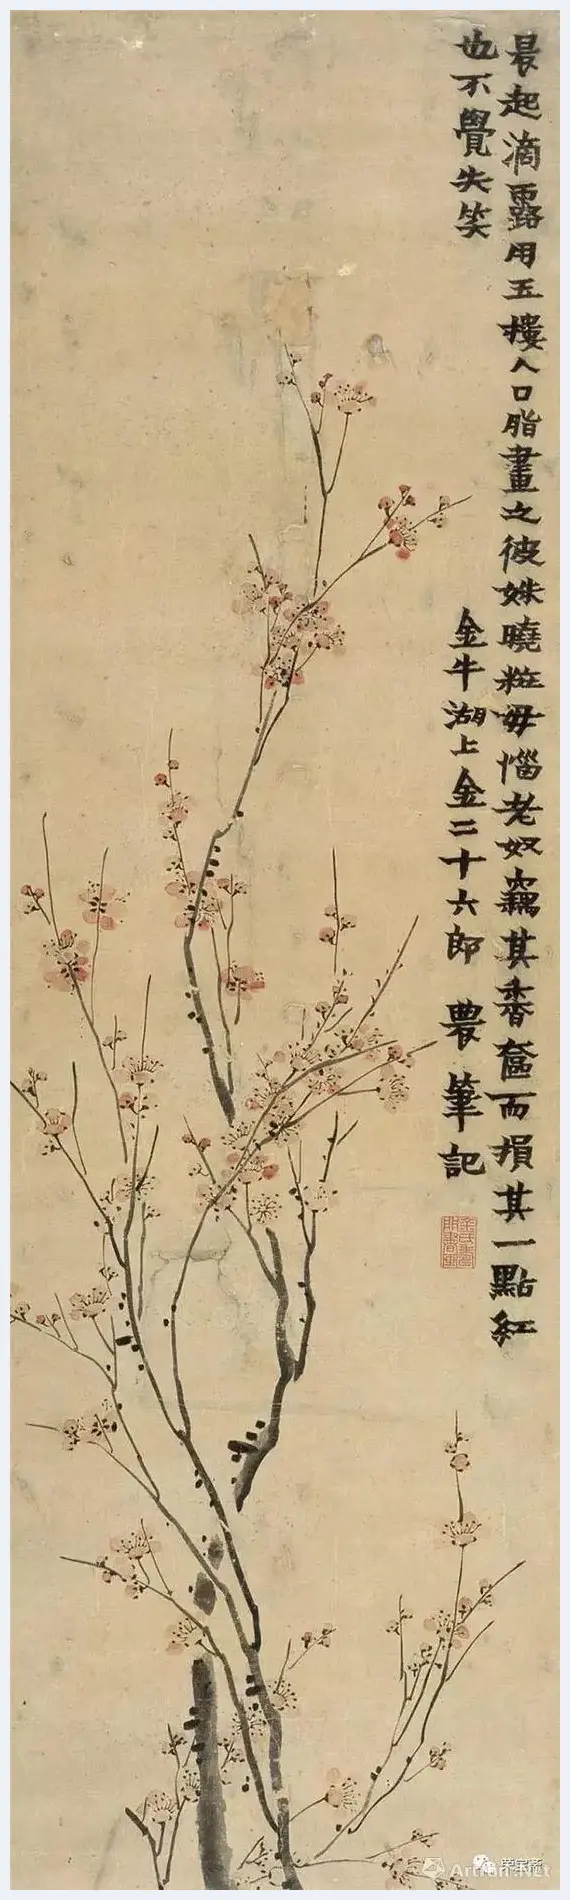 晨起滴露用五樓人口脂畫之彼姝曉粧毋惱老奴竊其香奩而損其一點紅
也不覺失笑
金牛湖上金二十六郎 農筆記
榮寶齋
Artron.Net